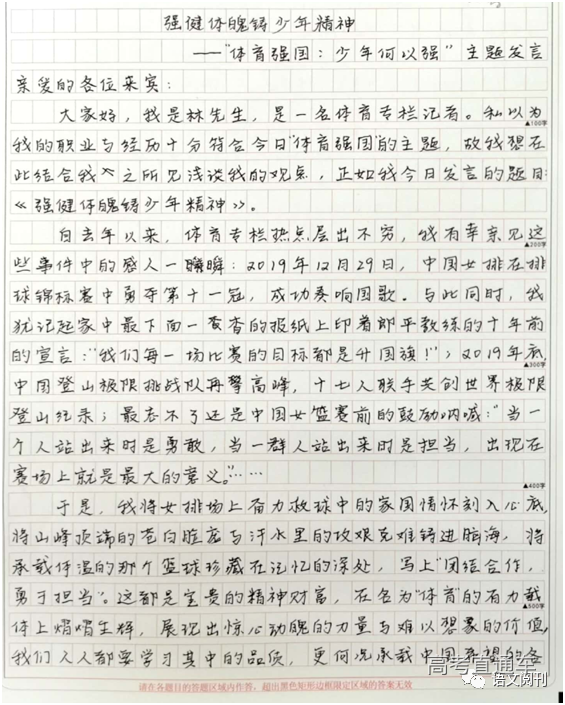 强健体魄铸少年精神
——“体育强国：少年何以强”主题发言
亲爱的各位来宾：
大家好，我是林先生，是一名体育专栏记者。私以为
▲100字
我的职业与经历十分符合今日“体育强国”的主题，故我想在
此结合我个人之所见浅谈我的观点，正如我今日发言的题目：
《强健体魄铸少年精神》。
自去年以来，体育专栏热点层出不穷，我有幸亲见这
▲200字
些事件中的感人一瞬：2019年12月29日，中国女排在排
球锦标赛中勇夺第十一冠，成功奏响国歌。与此同时，我
犹记起家中最下面一沓的报纸上印着郎平教练的十年前
的宣言：“我们每一场比赛的目标都是升国旗！”；2019年底，
▲300字
中国登山极限挑战队再攀高峰，十七人联手共创世界极限
登山纪录；最忘不了还是中国女篮赛前的鼓励呐喊：“当一
个人站出来时是勇敢，当一群人站出来是担当，出现在
赛场上就是最大的意义。”……
▲400字
于是，我将女排场上奋力救球中的家国情怀刻入心底，
将山峰顶端的苍白脸庞与汗水里的攻艰克难铸进脑海，将
承载体温的那个篮球珍藏在记忆的深处，写上“团结合作，
勇于担当”。这都是宝贵的精神财富，在名为“体育”的有力载
▲500字
体上熠熠生辉，展现出惊心动魄的力量与难以想象的价值，
我们人人都要学习其中的品质，更何况承载中国希望的各
请在各题目的答题区域内作答，超出黑色矩形边框限定区域的答案无效
高考直通车
语文阅刊